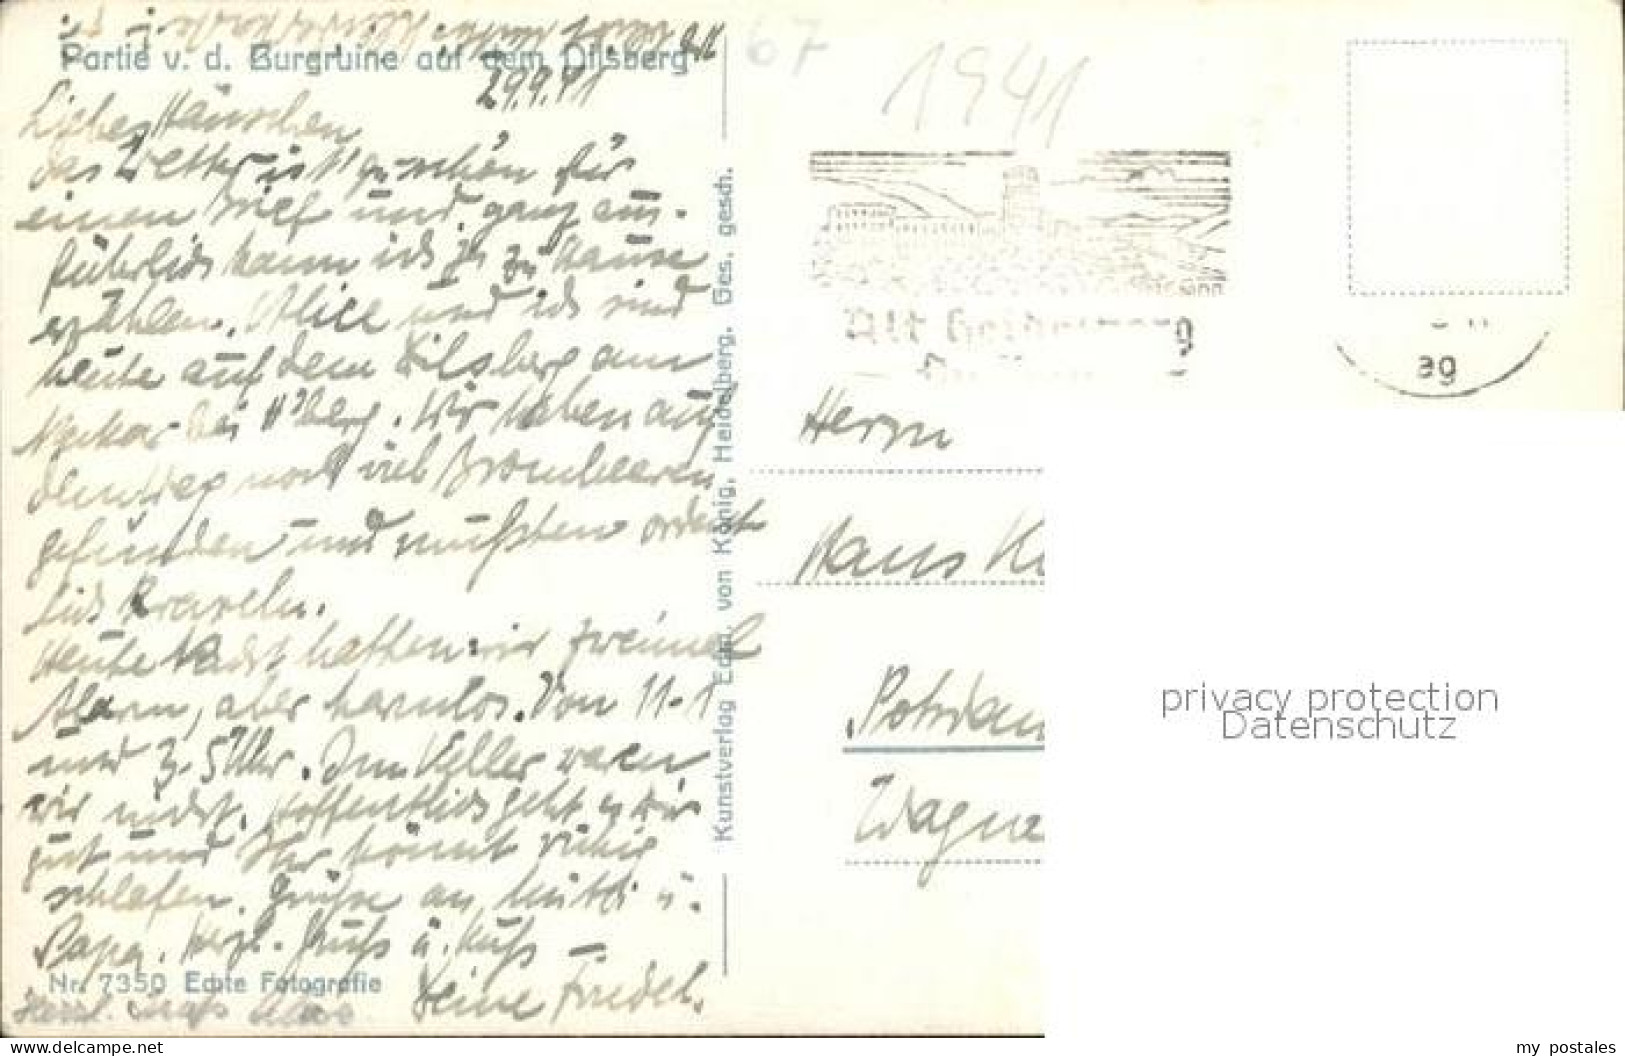 Partie v. d. Burgruine auf dem Dilsberg
29.9.41
Liebes Hänschen
das Wetter ist zu schön für
einen Brief und ganz aus-
führlich kann ich ja zu Hause
erzählen. Alice und ich sind
heute auf dem Dilsberg am
Neckar bei H'berg. Wir haben auf
dem Weg noch viel Brombeeren
gefunden und mußten ordent
lich kraxeln.
Heute Nacht hatten wir zweimal
Alarm, aber harmlos. Von 11-1
und 3-5 Uhr. Im Keller waren
wir nicht. Hoffentlich geht es Dir
gut und Ihr könnt ruhig
schlafen. Grüße an Mutti u.
Papa. Herzl. Gruß u. Kuß –
Deine Friedel.
Nr. 7350 Echte Fotografie
Herzl. Gruß Alice
Kunstverlag Edm. von König, Heidelberg. Ges. gesch.
67
1941
Alt Heidelberg
ag
Herrn
Hans K
Potsdam
Wagne
privacy protection
Datenschutz
my postales
www.delcampe.net